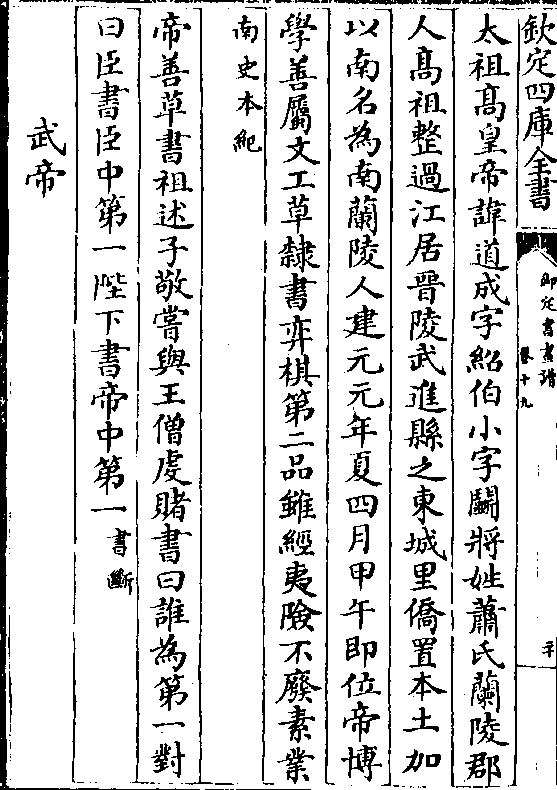 欽定四庫全書
御定書畫譜
卷十九
太祖髙皇帝諱道成字紹伯小字鬭將姓蕭氏蘭陵郡
人髙祖整過江居晉陵武進縣之東城里僑置本土加
以南名為南蘭陵人建元元年夏四月甲午即位帝博
學善屬文工草隸書弈棋第二品雖經夷險不廢素業
南史本紀
帝善草書祖述子敬嘗與王僧虔賭書曰誰為第一對
曰臣書臣中第一陛下書帝中第一書斷
武帝